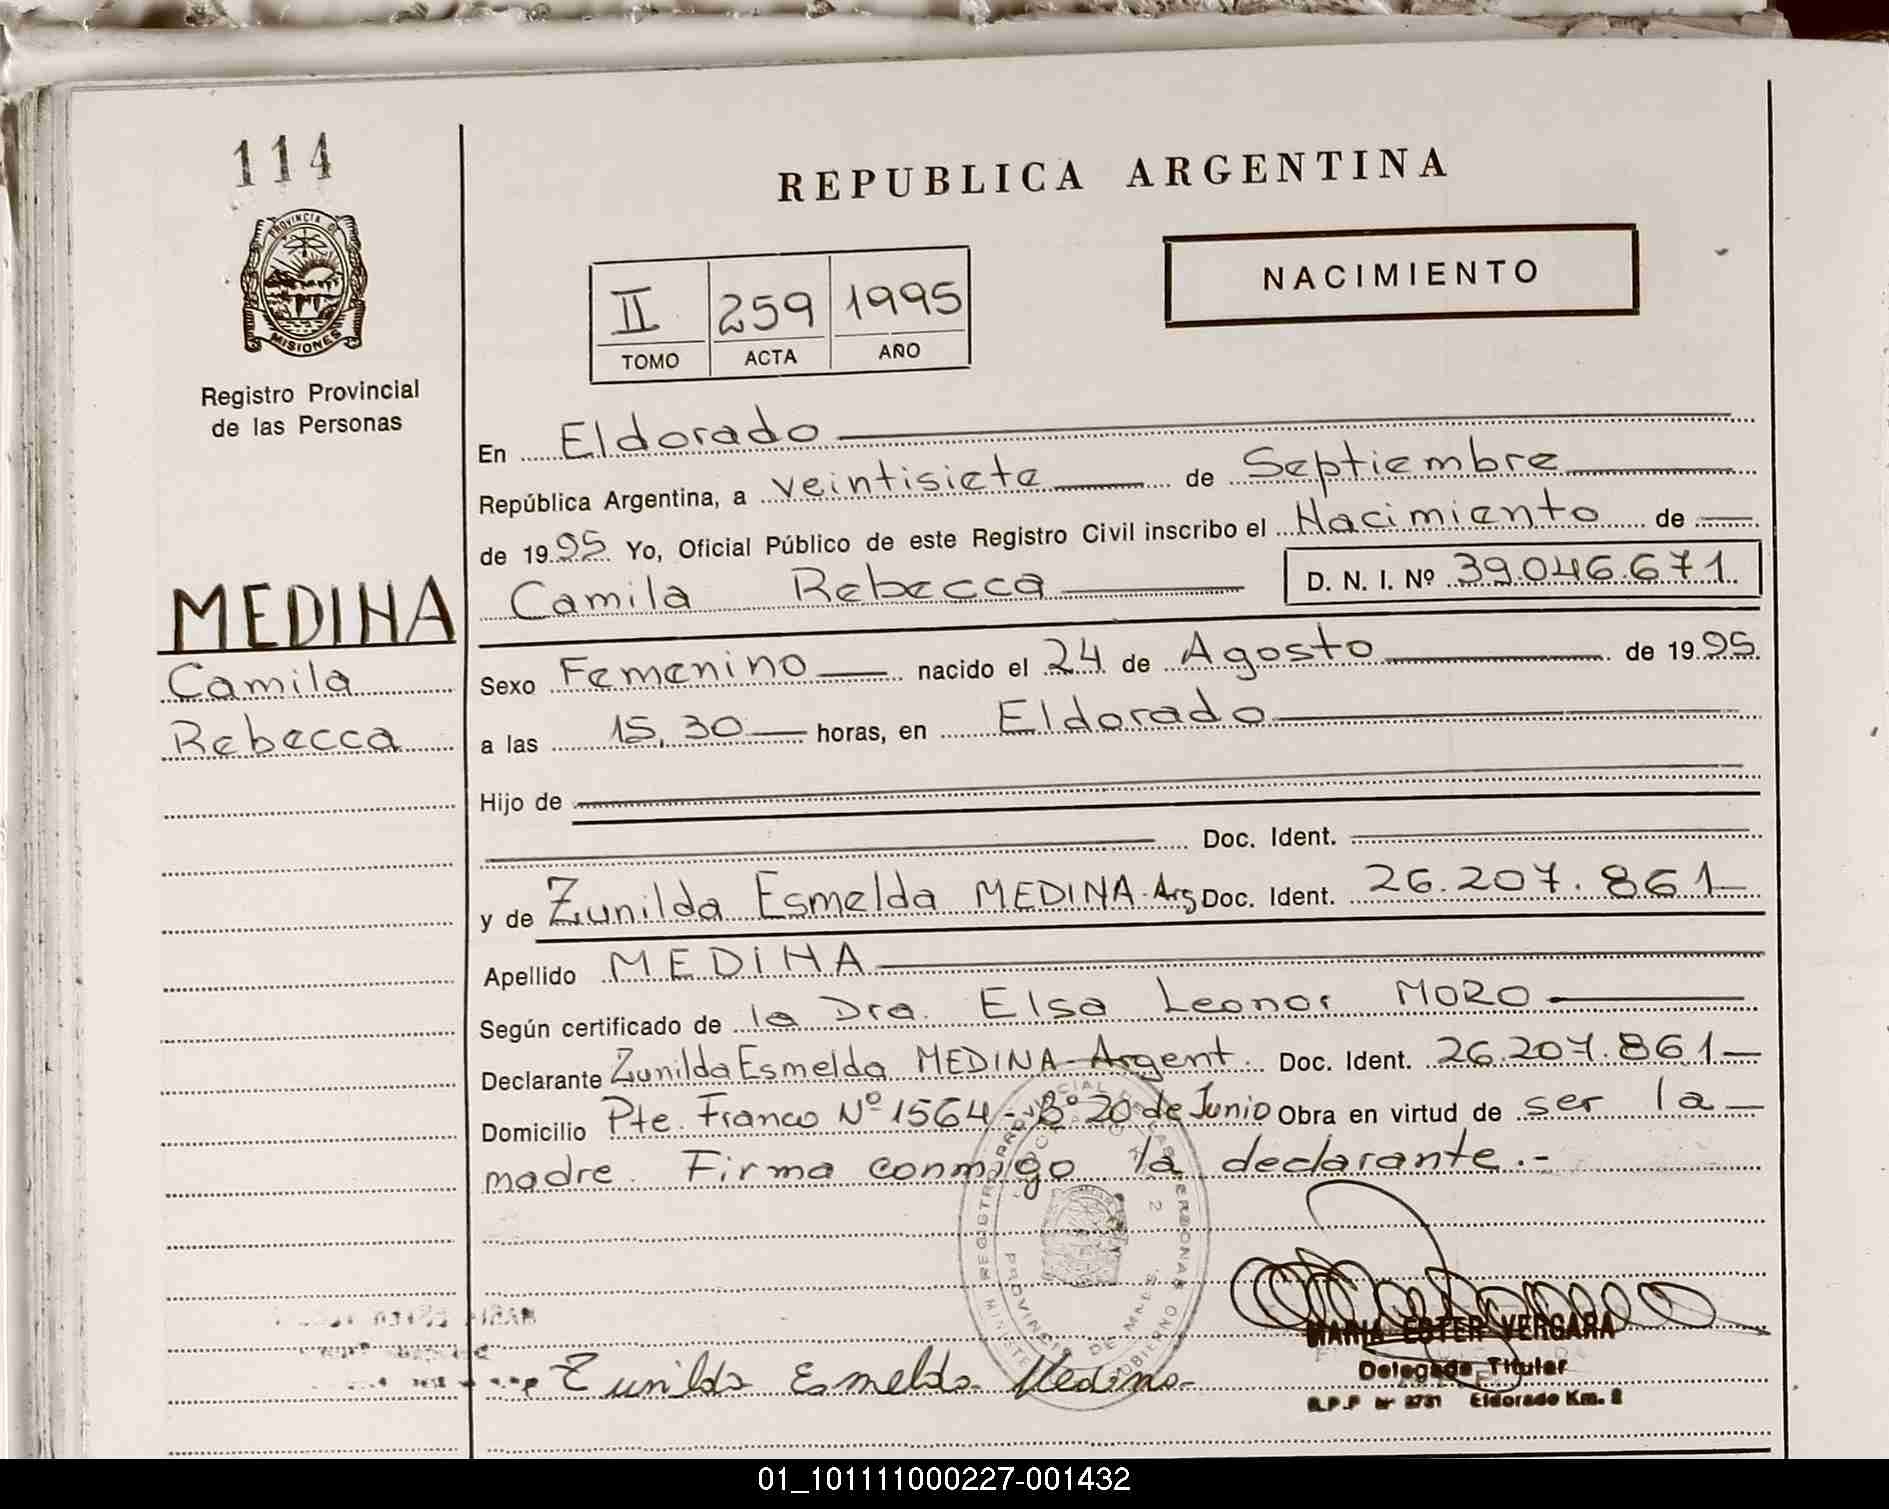 114
PROVINCIA DE
MISIONES
Registro Provincial
de las Personas
MEDINA
Camila
Rebecca
REPUBLICA ARGENTINA
NACIMIENTO
II 259 1995
TOMO ACTA AÑO
En Eldorado
República Argentina, a veintisiete de Septiembre
de 1995 Yo, Oficial Público de este Registro Civil inscribo el Nacimiento de
Camila Rebecca D. N. I. Nº 39.046.671
Sexo Femenino nacido el 24 de Agosto de 1995
a las 15,30 horas, en Eldorado
Hijo de
Doc. Ident.
y de Zunilda Esmelda MEDINA-Arg Doc. Ident. 26.207.861
Apellido MEDINA
Según certificado de la Dra. Elsa Leonor MORO
Declarante Zunilda Esmelda MEDINA-Argent. Doc. Ident. 26.207.861
Domicilio Pte. Franco Nº 1564-Bº 20 de Junio Obra en virtud de ser la
madre. Firma conmigo la declarante.-
MARIA ESTER VERGARA
Delegada Titular
R.P.P Nº 2731 Eldorado Km. 2
Zunilda Esmelda Medina
01_101111000227-001432